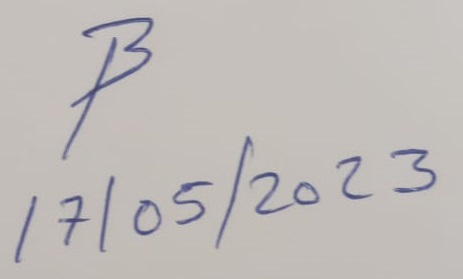 B
17/05/2023